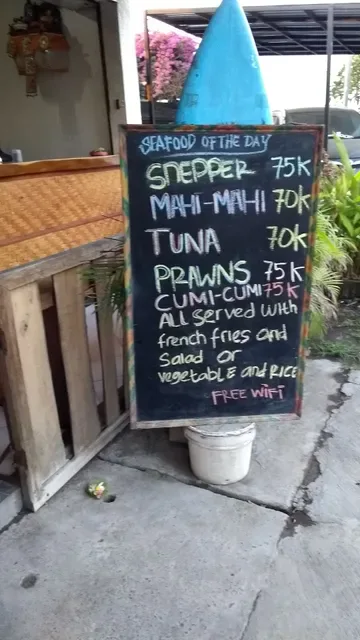 SEAFOOD OF THE DAY
SNEPPER 75K
MAHI-MAHI 70K
TUNA 70K
PRAWNS 75K
CUMI-CUMI 75K
ALL served with
french fries and
Salad or
vegetablE and RICE
FREE WiFi